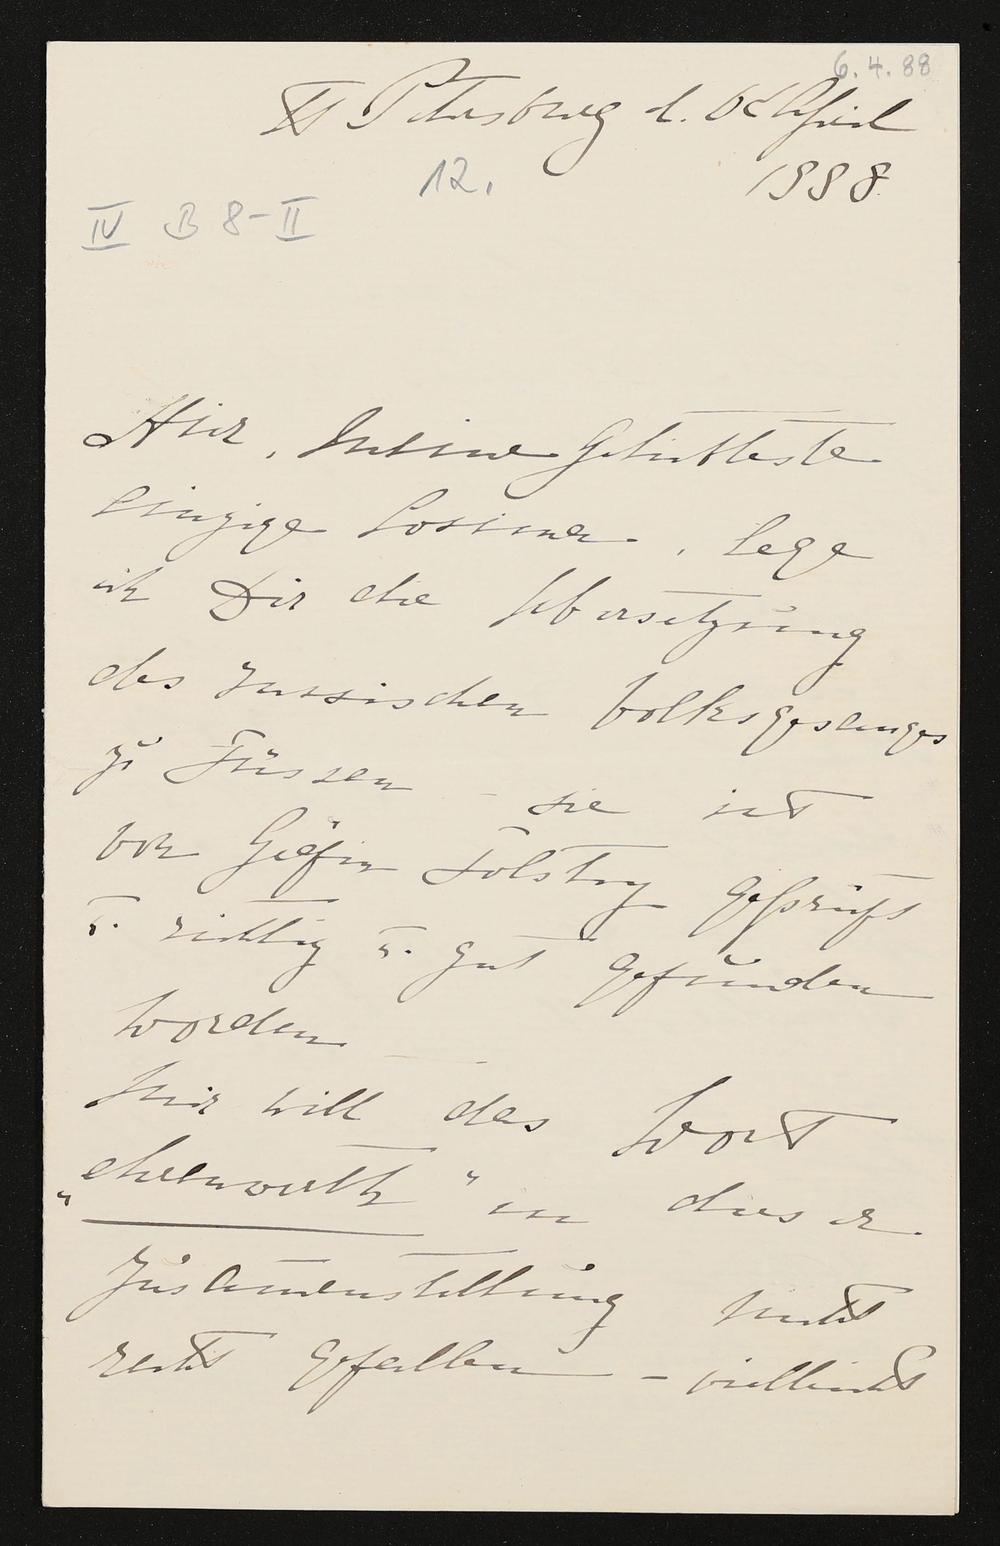 6.4.88
St Petersburg d. 6t April
1888
12.
IV B 8-II
Hier, Meine Geliebteste
einzige Cosima, lege
ich Dir die Übersetzung
des russischen Volksgesanges
zu Füssen – sie ist
von Gräfin Tolstoy geprüft
u. richtig u. gut gefunden
worden
Mir will das Wort
„ehrenwerth" in dieser
Zusam̄enstellung nicht
recht gefallen – vielleicht